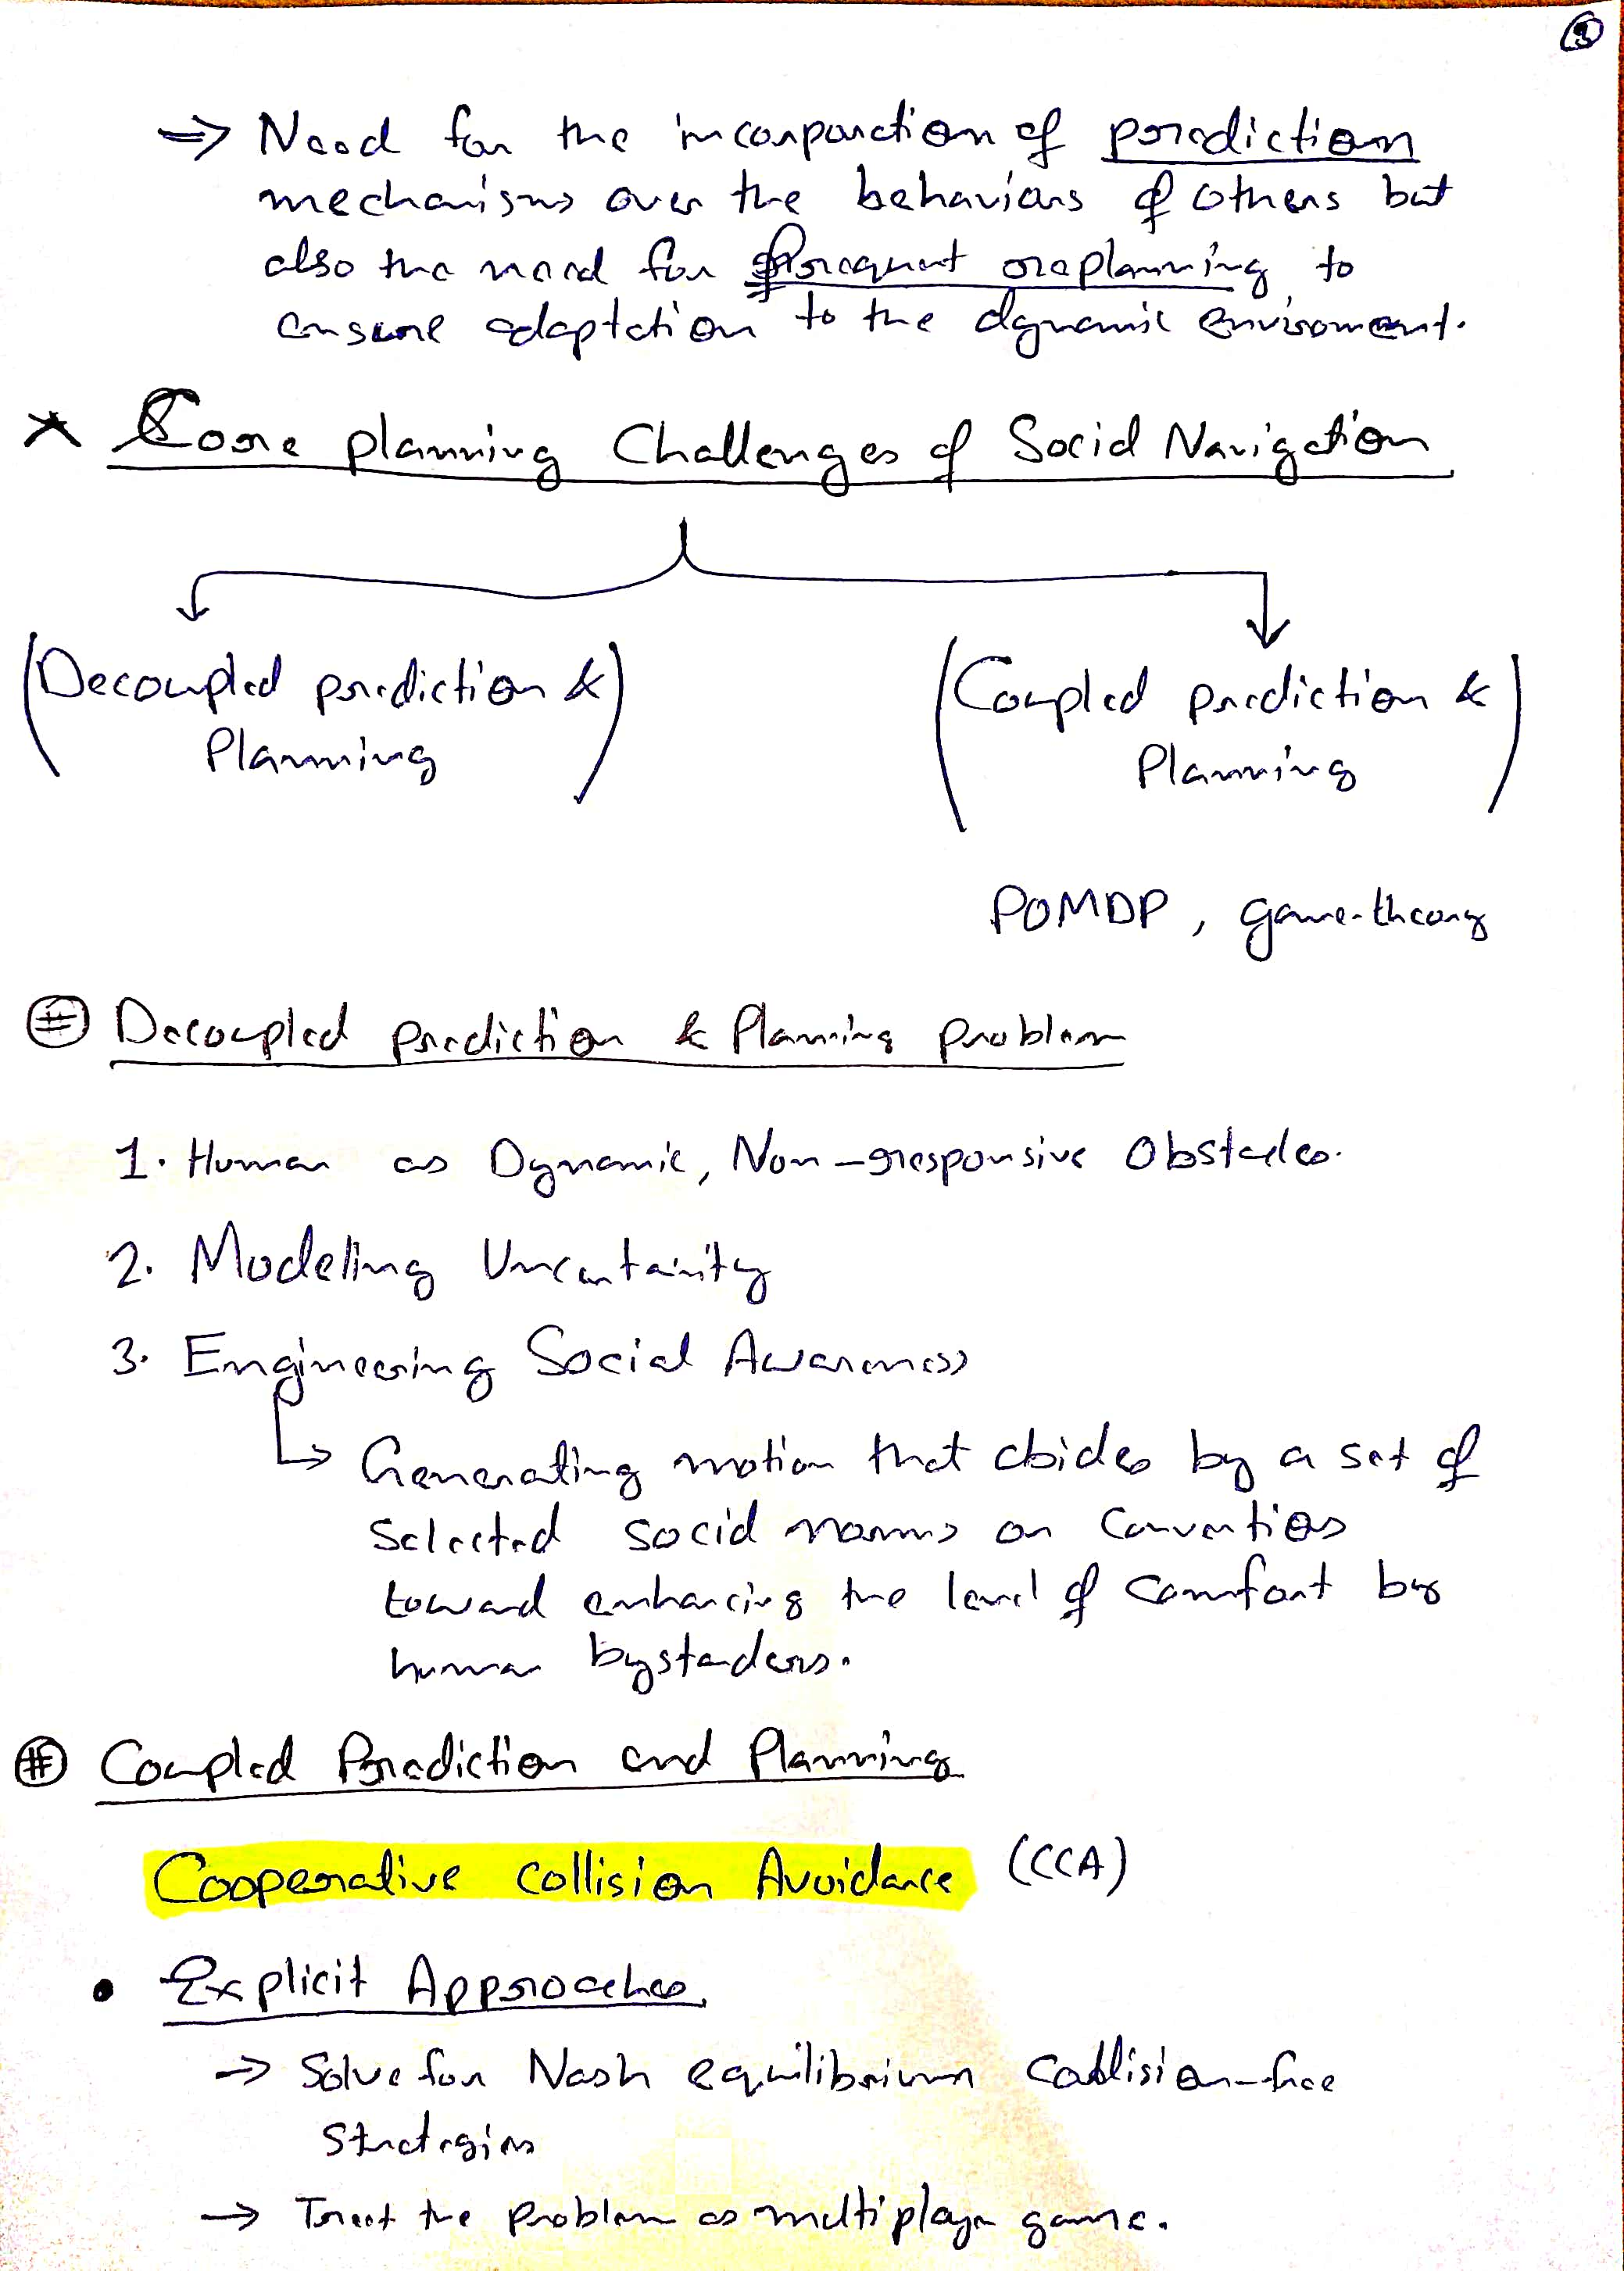 ⇒ Need for the incorporaction of prediction
mechanisms over the behaviors of others but
also the need for frequent replanning to
ensure adaptation to the dynamic enviroment.
* Core planning Challenges of Social Navigation
(Decoupled prediction & Planning)
(Coupled prediction & Planning)
POMDP, game-theory
# Decoupled prediction & Planning problem
1. Human as Dynamic, Non-responsive Obstacles.
2. Modeling Uncertainity
3. Engineering Social Awareness
↳ Generating motion that abides by a set of
selected social norms or Conventios
toward enhancing the level of comfort by
human bystaders.
# Coupled Prediction and Planning
Cooperative Collision Avoidance (CCA)
• Explicit Approaches
→ Solve for Nash equilibrium Collision-free
Strategies
→ Treat the problem as multiplayer game.